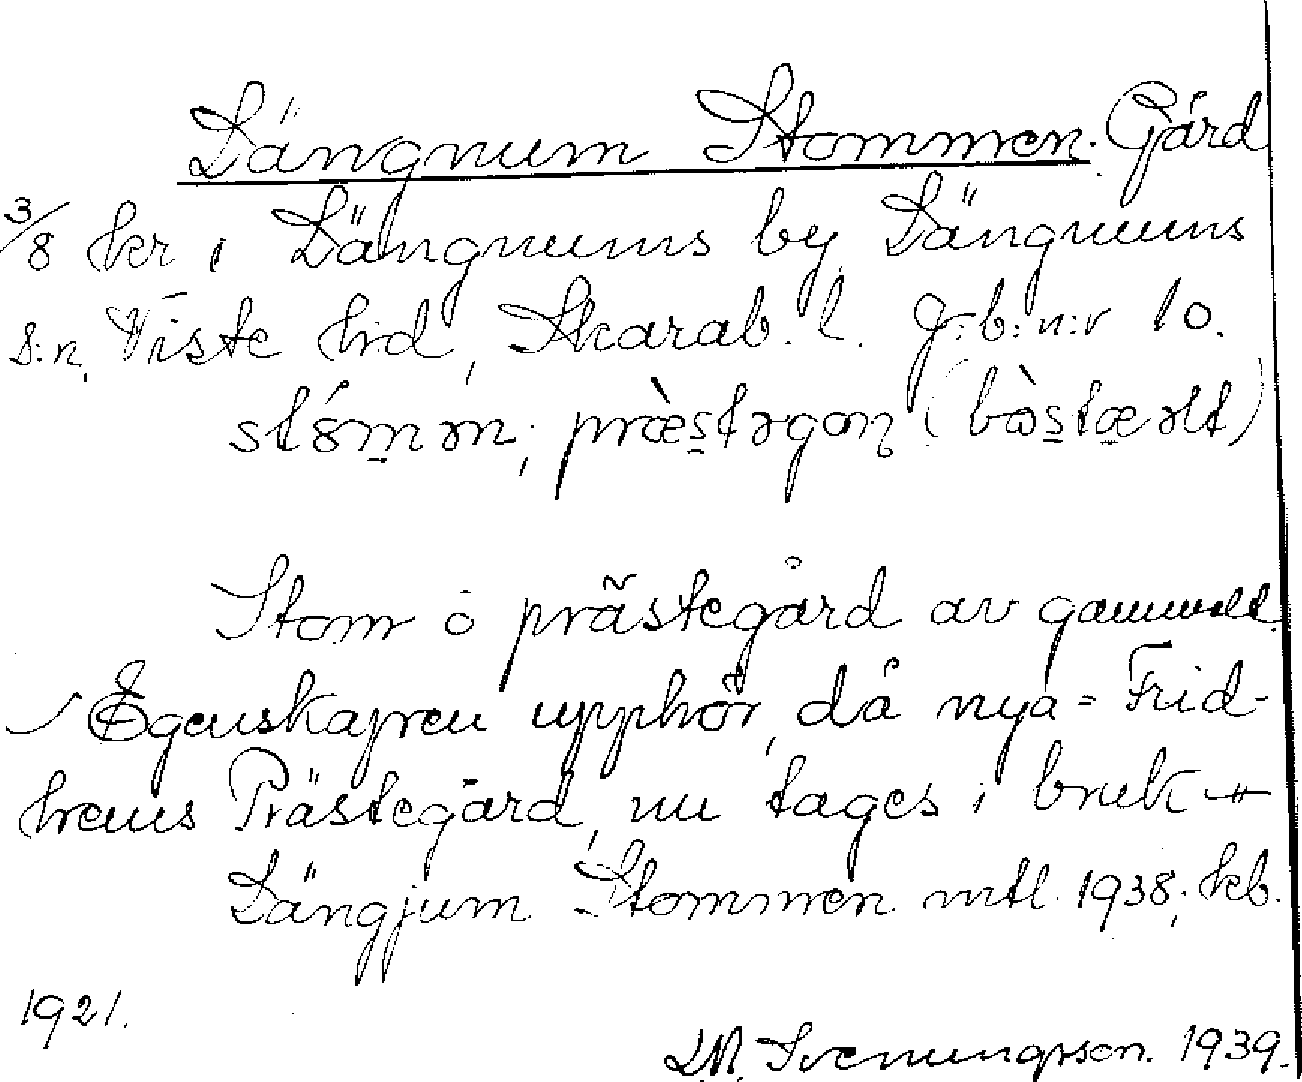 Längnum Stommen. Gård
3/8 kr i Längnums by, Längnums
s:n, Viste hd, Skarab. l. J:b:n:r 10.
stómən; præ̀stəgaɳ (bòstæəlt)
Stom o prästegård av gammalt.
Egenskapen upphör, då nya = Frid-
hems Prästegård, nu tages i bruk
Längjum Stommen mtl. 1938; kb.
1921.
Svenungsson. 1939.